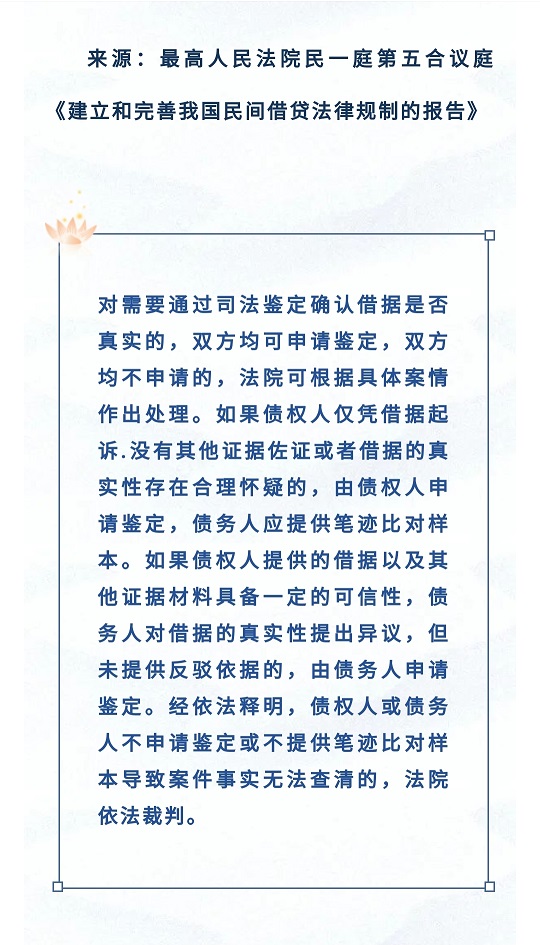 来源：最高人民法院民一庭第五合议庭
《建立和完善我国民间借贷法律规制的报告》
对需要通过司法鉴定确认借据是否
真实的，双方均可申请鉴定，双方
均不申请的，法院可根据具体案情
作出处理。如果债权人仅凭借据起
诉.没有其他证据佐证或者借据的真
实性存在合理怀疑的，由债权人申
请鉴定，债务人应提供笔迹比对样
本。如果债权人提供的借据以及其
他证据材料具备一定的可信性，债
务人对借据的真实性提出异议，但
未提供反驳依据的，由债务人申请
鉴定。经依法释明，债权人或债务
人不申请鉴定或不提供笔迹比对样
本导致案件事实无法查清的，法院
依法裁判。